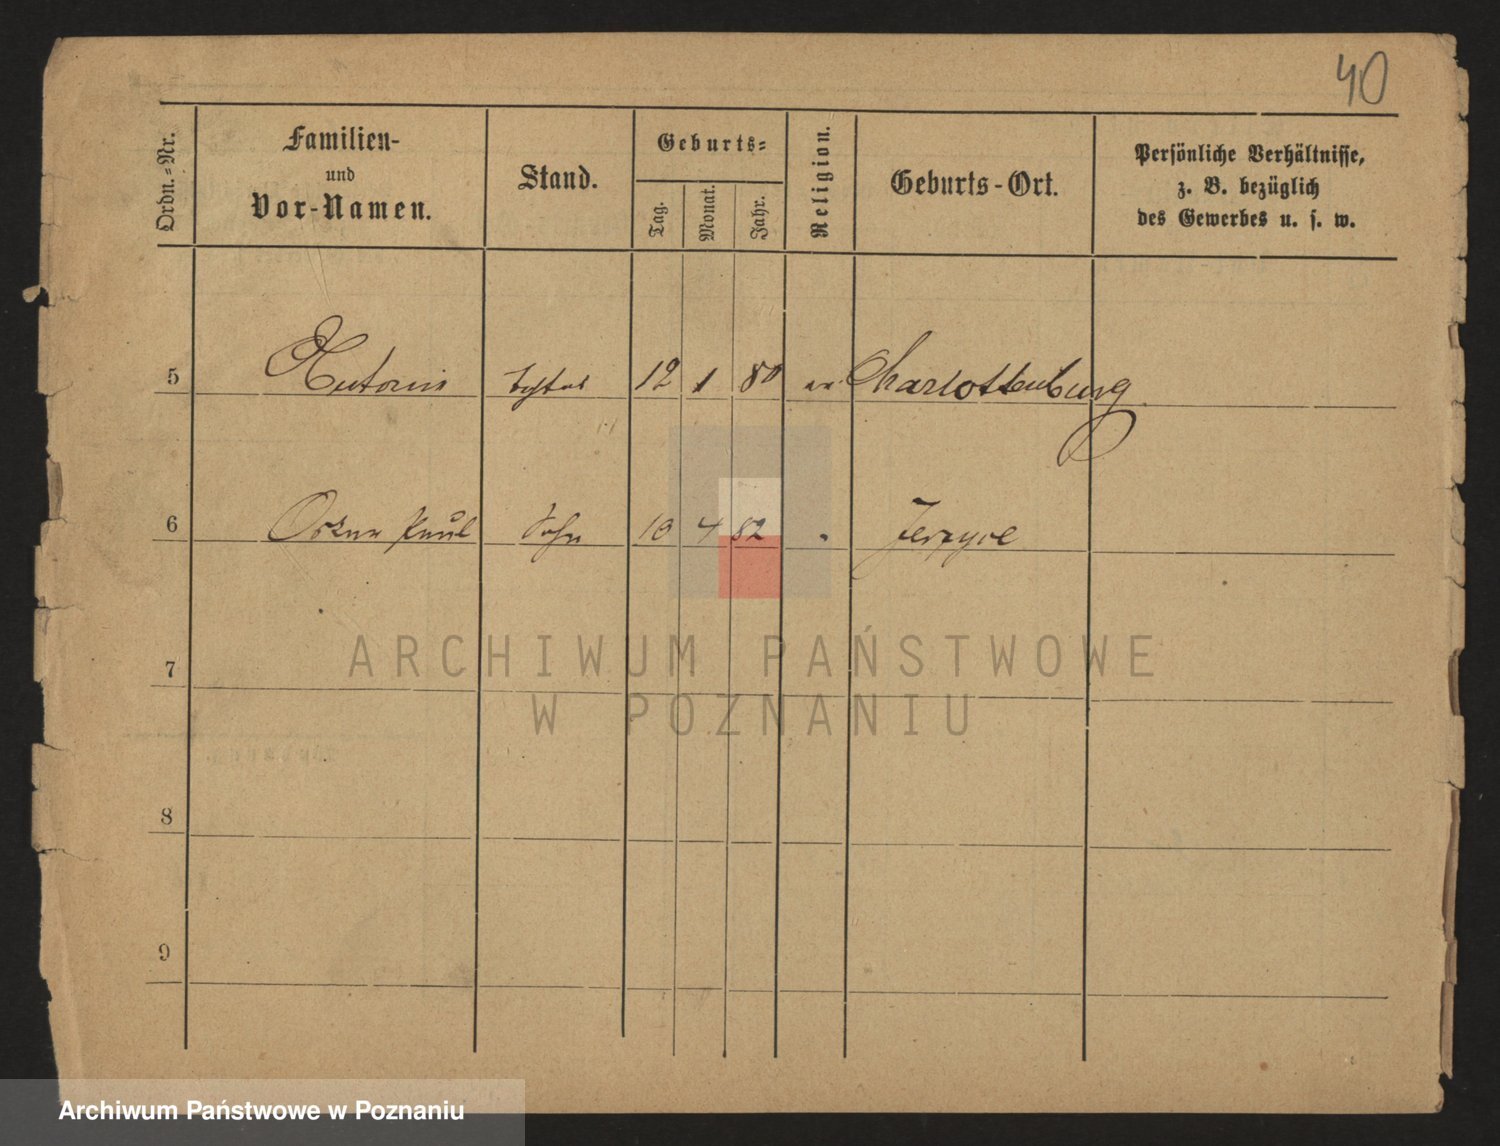 40
Ordn.=Nr.
Familien-
und
Vor-Namen.
Stand.
Geburts=
Tag.
Monat.
Jahr.
Religion.
Geburts-Ort.
Persönliche Verhältnisse,
z. B. bezüglich
des Gewerbes u. s. w.
5 12 1 80 Charlottenburg
6 Oskar Paul Sohn 10 4 82 "
7
8
9
ARCHIWUM PAŃSTWOWE
W POZNANIU
Archiwum Państwowe w Poznaniu